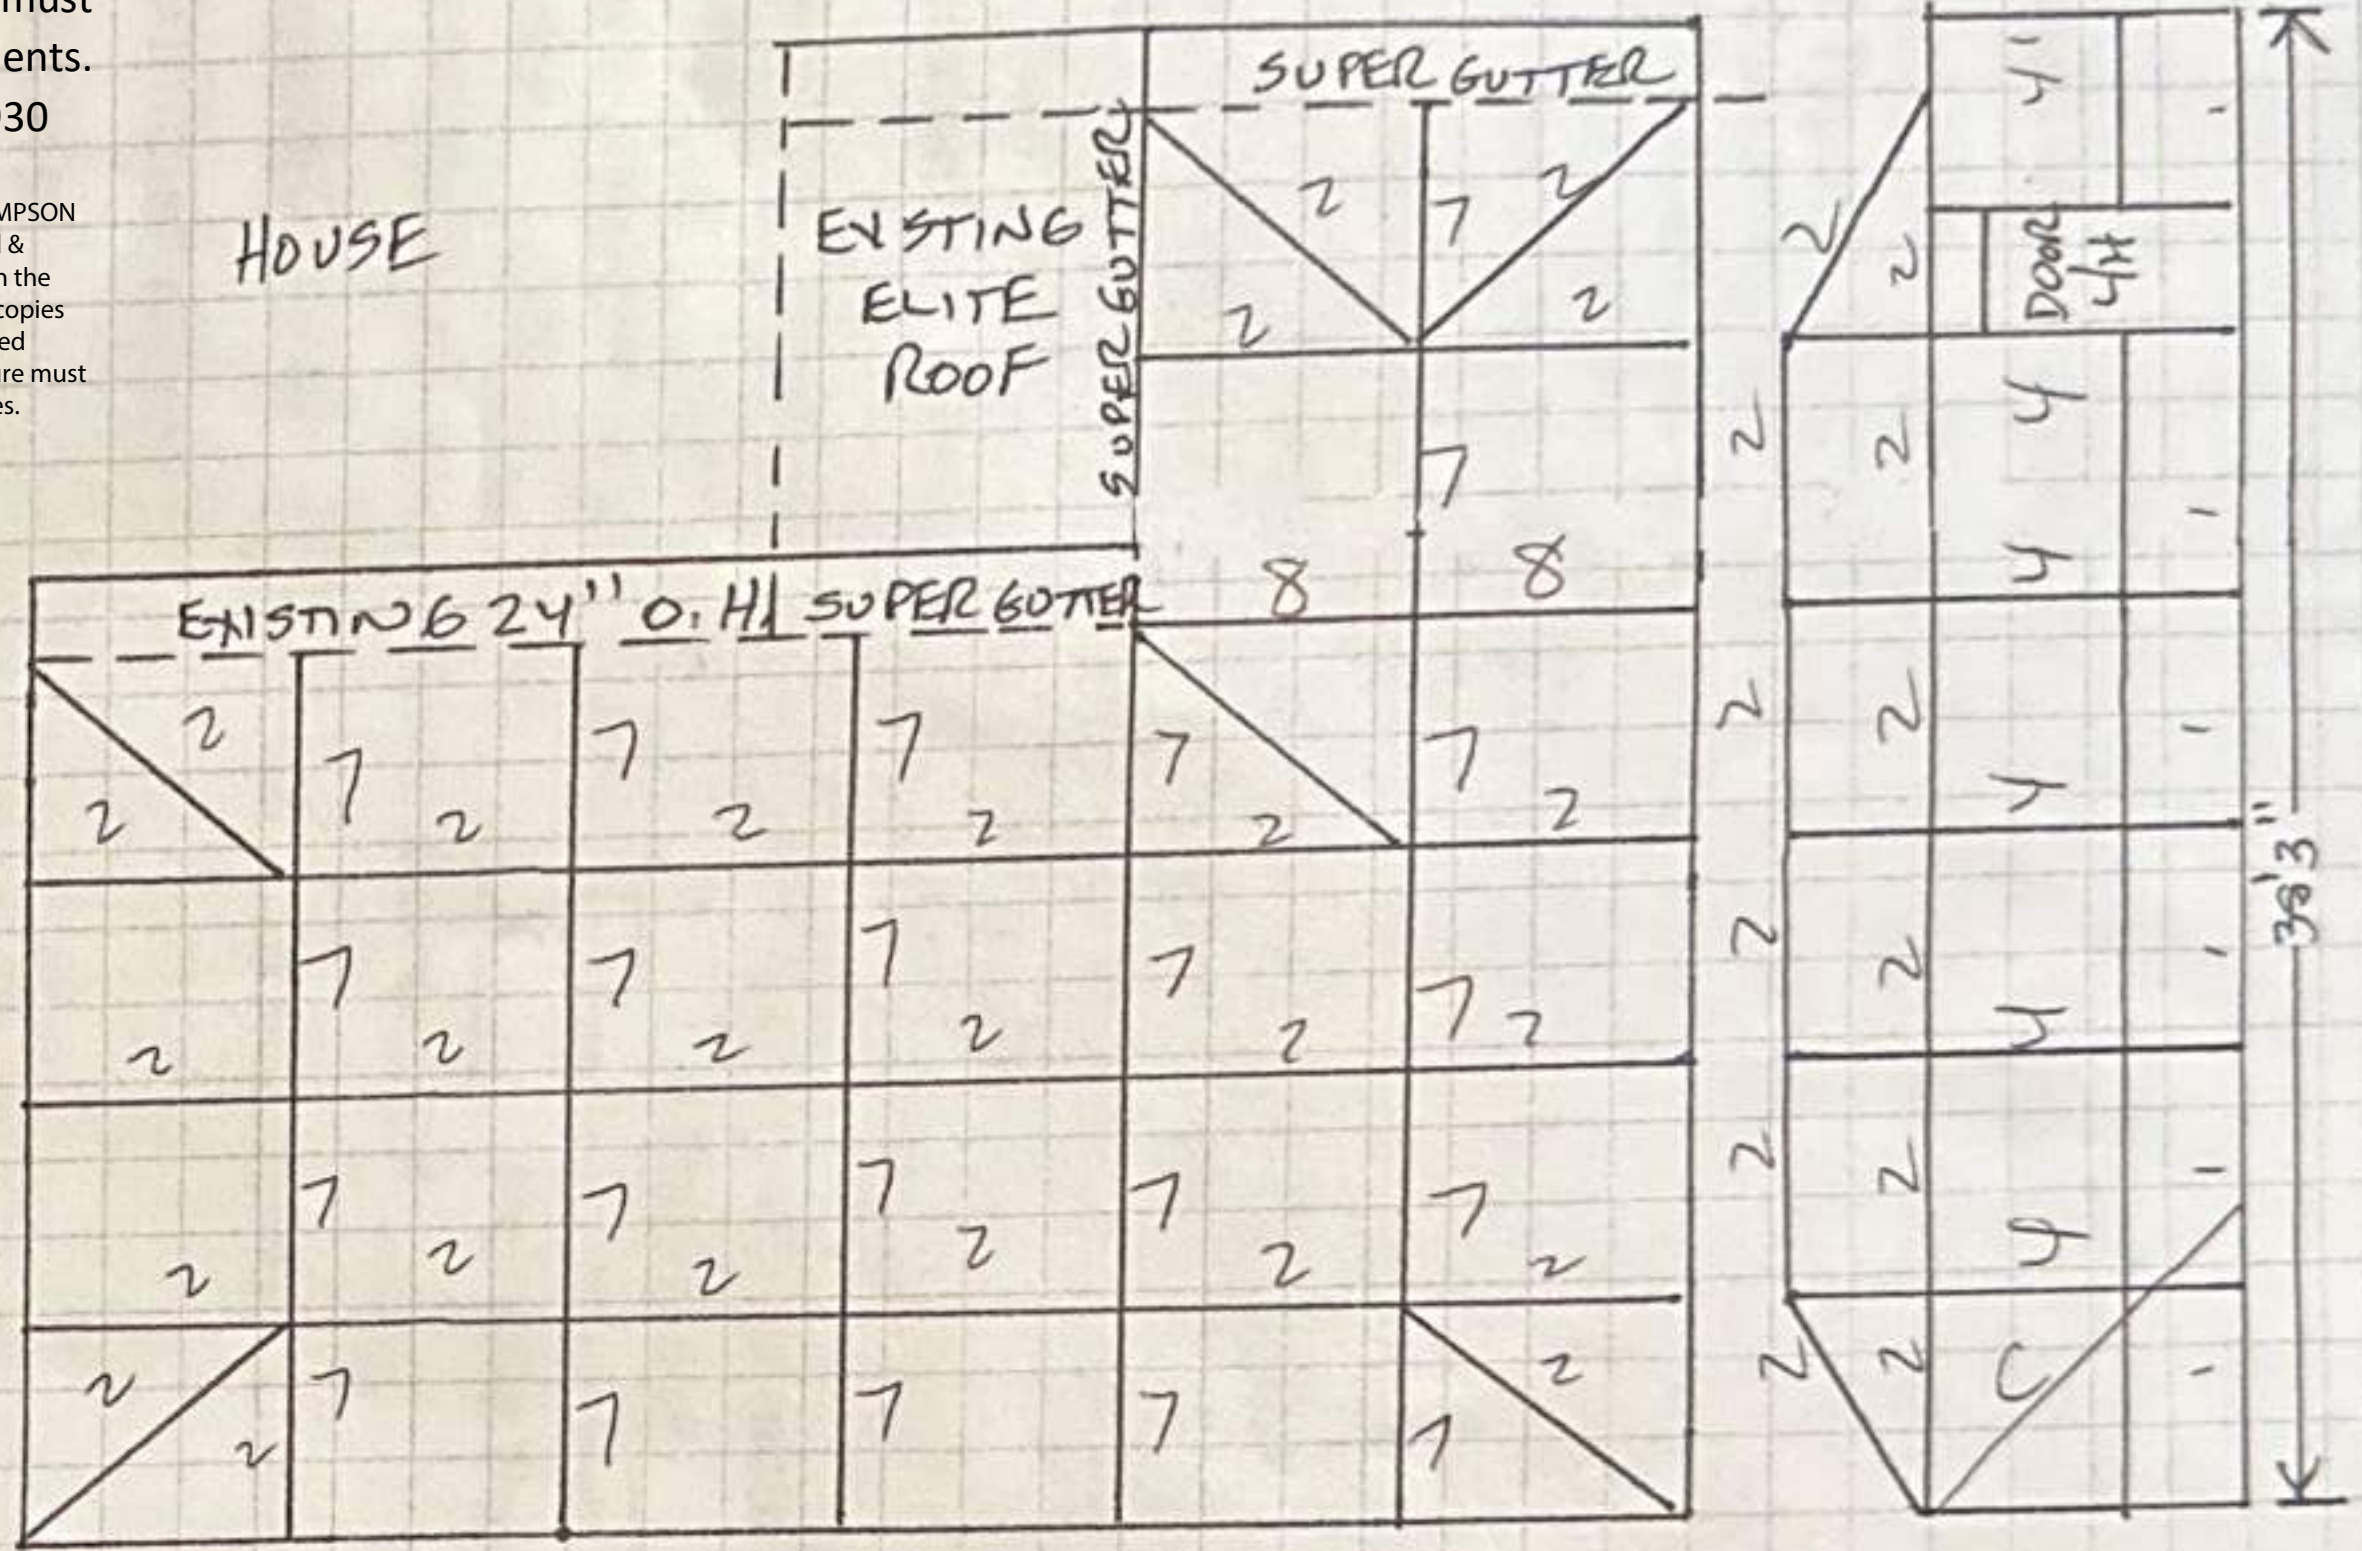 must
ents.
930
MPSON
&
n the
copies
ed
ure must
es.
HOUSE
EXISTING
ELITE
ROOF
SUPER GUTTER
SUPER GUTTER
EXISTING 24" O.H. SUPER GUTTER
2 7 2
2 2
7
8 8
2 7 7 7 7 7
2 2 2 2 2 2
7 7 7 7 7
2 2 2 2 2 2
7 7 7 7 7
2 2 2 2 2 2
2 7 7 7 7 7 2
2
4' 1
2 2 DOOR
4H
2 2 4 1
4
2 2 4 1
2 2 4 1
2 2 4 1
2 2 C 1
38'3"